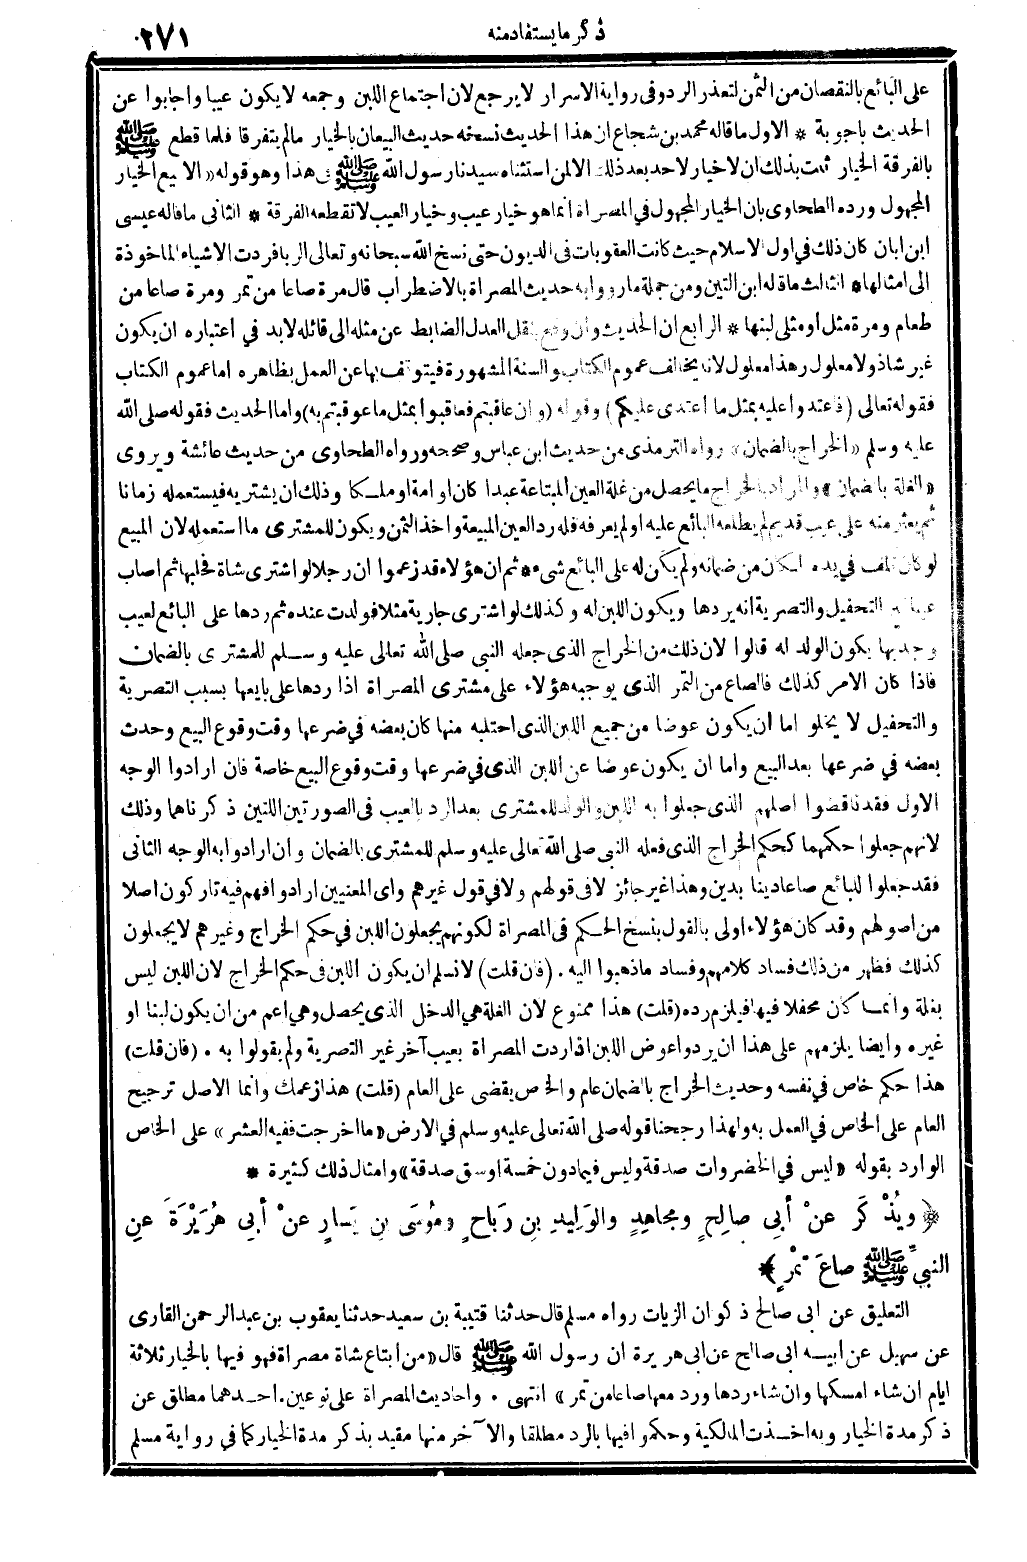 ذكر ما يستفاد منه ٢٧١
على البائع بالنقصان من الثمن لتعذر الرد وفى رواية الاسرار لا يرجع لان اجتماع اللبن وجمعه لا يكون عيبا واجابوا عن
الحديث باجوبة * الاول ما قاله محمد بن شجاع ان هذا الحديث نسخه حديث البيعان بالخيار ما لم يتفرقا فلما قطع ﷺ
بالفرقة الخيار ثبت بذلك ان لا خيار لاحد بعد ذلك الا لمن استثناه سيدنا رسول الله ﷺ فى هذا وهو قوله «الا بيع الخيار
المجهول ورده الطحاوى بان الخيار المجهول في المصراة انما هو خيار عيب وخيار العيب لا تقطعه الفرقة * الثانى ما قاله عيسى
ابن ابان كان ذلك في اول الاسلام حيث كانت العقوبات فى الديون حتى نسخ الله سبحانه وتعالى الربا فردت الاشياء الماخوذة
الى امثالها * الثالث ما قاله ابن التين ومن جملة ما رووا به حديث المصراة بالاضطراب قال مرة صاعا من تمر ومرة صاعا من
طعام ومرة مثل او مثلى لبنها * الرابع ان الحديث وان وقع بنقل العدل الضابط عن مثله الى قائله لابد في اعتباره ان يكون
غير شاذ ولا معلول وهذا معلول لانه يخالف عموم الكتاب والسنة المشهورة فيتوقف بها عن العمل بظاهره اما عموم الكتاب
فقوله تعالى (فاعتدوا عليه بمثل ما اعتدى عليكم) وقوله (وان عاقبتم فعاقبوا بمثل ما عوقبتم به) واما الحديث فقوله صلى الله
عليه وسلم «الخراج بالضمان» رواه الترمذى من حديث ابن عباس وصححه ورواه الطحاوى من حديث عائشة ويروى
«الغلة بالضمان» والمراد بالخراج ما يحصل من غلة العين المبتاعة عبدا كان او امة او ملكا وذلك ان يشتريه فيستعمله زمانا
ثم يعثر منه على عيب قديم لم يطلعه البائع عليه او لم يعرفه فله رد العين المبيعة واخذ الثمن ويكون للمشترى ما استعمله لان المبيع
لو كان تلف في يده لكان من ضمانه ولم يكن له على البائع شىء * ثم ان هؤلاء قد زعموا ان رجلا لو اشترى شاة فحلبها ثم اصاب
عيبا غير التحفيل والتصرية انه يردها ويكون اللبن له وكذلك لو اشترى جارية مثلا فولدت عنده ثم ردها على البائع لعيب
وجد بها يكون الولد له قالوا لان ذلك من الخراج الذى جعله النبى صلى الله تعالى عليه وسلم للمشترى بالضمان
فاذا كان الامر كذلك فالصاع من التمر الذى يوجبه هؤلاء على مشترى المصراة اذا ردها على بايعها بسبب التصرية
والتحفيل لا يخلو اما ان يكون عوضا من جميع اللبن الذى احتلبه منها كان بعضه في ضرعها وقت وقوع البيع وحدث
بعضه في ضرعها بعد البيع واما ان يكون عوضا عن اللبن الذى في ضرعها وقت وقوع البيع خاصة فان ارادوا الوجه
الاول فقد ناقضوا اصلهم الذى جعلوا به اللبن والولد للمشترى بعد الرد بالعيب فى الصورتين اللتين ذكرناهما وذلك
لانهم جعلوا حكمهما كحكم الخراج الذى فعله النبى صلى الله تعالى عليه وسلم للمشترى بالضمان وان ارادوا به الوجه الثانى
فقد جعلوا للبائع صاعا دينا بدين وهذا غير جائز لا فى قولهم ولا في قول غيرهم واى المعنيين ارادوا فهم فيه تاركون اصلا
من اصولهم وقد كان هؤلاء اولى بالقول بنسخ الحكم فى المصراة لكونهم يجعلون اللبن في حكم الخراج وغيرهم لا يجعلون
كذلك فظهر من ذلك فساد كلامهم وفساد ما ذهبوا اليه . (فان قلت) لا نسلم ان يكون اللبن فى حكم الخراج لان اللبن ليس
بغلة وانما كان محفلا فيها فيلزم رده (قلت) هذا ممنوع لان الغلة هي الدخل الذى يحصل وهي اعم من ان يكون لبنا او
غيره وايضا يلزمهم على هذا ان يردوا عوض اللبن اذا ردت المصراة بعيب آخر غير التصرية ولم يقولوا به . (فان قلت)
هذا حكم خاص في نفسه وحديث الخراج بالضمان عام والخاص يقضى على العام (قلت) هذا زعمك وانما الاصل ترجيح
العام على الخاص في العمل به ولهذا رجحنا قوله صلى الله تعالى عليه وسلم في الارض «ما اخرجت ففيه العشر» على الخاص
الوارد بقوله «ليس في الخضروات صدقة وليس فيما دون خمسة اوسق صدقة» وامثال ذلك كثيرة *
﴿ ويُذْكَرُ عنْ أبي صالِحٍ ومجاهِدٍ والوَلِيدِ بنِ رَباحٍ ومُوسَى بنِ يَسارٍ عنْ أبي هُرَيْرَةَ عنِ
النبيِّ ﷺ صاعَ تَمْرٍ ﴾
التعليق عن ابى صالح ذكوان الزيات رواه مسلم قال حدثنا قتيبة بن سعيد حدثنا يعقوب بن عبد الرحمن القارى
عن سهيل عن ابيه ابى صالح عن ابى هريرة ان رسول الله ﷺ قال «من ابتاع شاة مصراة فهو فيها بالخيار ثلاثة
ايام ان شاء امسكها وان شاء ردها ورد معها صاعا من تمر» انتهى . واحاديث المصراة على نوعين . احدهما مطلق عن
ذكر مدة الخيار وبه اخذت المالكية وحكموا فيها بالرد مطلقا والآخر منها مقيد بذكر مدة الخيار كما في رواية مسلم